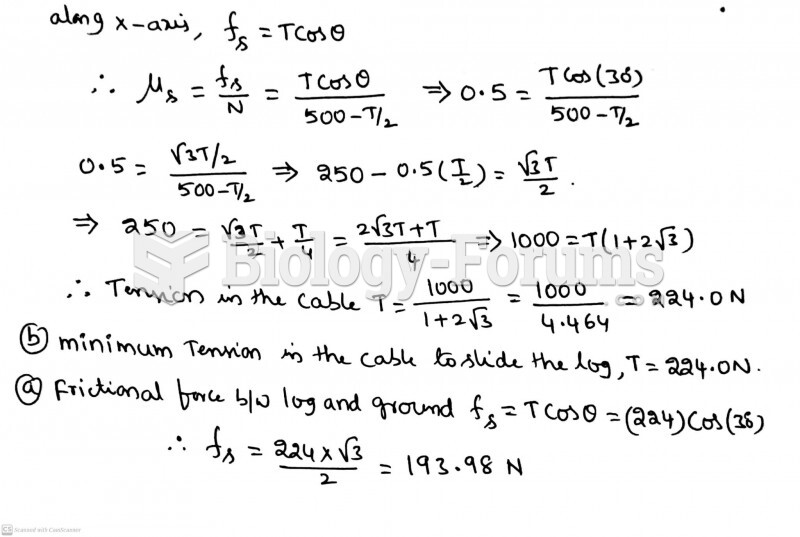 along x-axis, fs = Tcosθ
∴ μs = fs/N = Tcosθ/(500-T/2) ⇒ 0.5 = Tcos(30)/(500-T/2)
0.5 = (√3T/2)/(500-T/2) ⇒ 250 - 0.5(T/2) = √3T/2.
⇒ 250 = √3T/2 + T/4 = (2√3T+T)/4 ⇒ 1000 = T(1+2√3)
Biology-Forums
.com
∴ Tension in the cable T = 1000/(1+2√3) = 1000/4.464 = 224.0 N
(b) minimum Tension in the cable to slide the log, T = 224.0N.
(a) Frictional force b/w log and ground fs = Tcosθ = (224)Cos(30)
∴ fs = 224×√3/2 = 193.98 N
CS Scanned with CamScanner